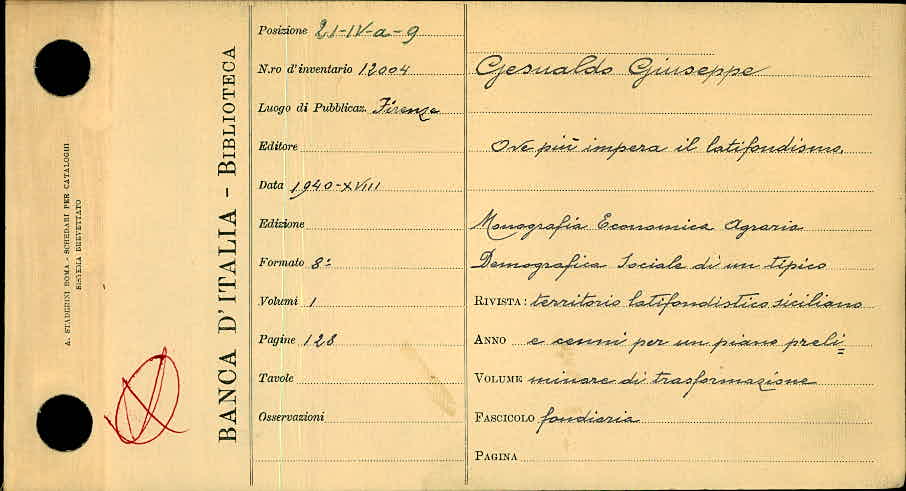 A. STADERINI ROMA - SCHEDARI PER CATALOGHI
SISTEMA BREVETTATO
BANCA D'ITALIA - BIBLIOTECA
Posizione 21-IV-a-9
N.ro d'inventario 12004
Luogo di Pubblicaz. Firenze
Editore
Data 1940-XVIII
Edizione
Formato 8°
Volumi 1
Pagine 128
Tavole
Osservazioni
Gesualdo Giuseppe
Ove più impera il latifondismo.
Monografia Economica Agraria
Demografica Sociale di un tipico
RIVISTA: territorio latifondistico siciliano
ANNO e cenni per un piano preli=
VOLUME minare di trasformazione
FASCICOLO fondiaria
PAGINA